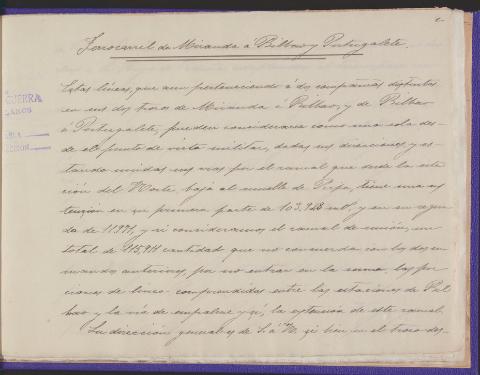 Ferrocarril de Miranda á Bilbao y Portugalete.
GUERRA
Estas líneas, que aun perteneciendo á dos compañías distintas
en sus dos trozos de Miranda á Bilbao, y de Bilbao
á Portugalete, pueden considerarse como una sola des-
de el punto de vista militar, dadas sus direcciones y es-
tando unidas sus vías por el ramal que desde la esta-
ción del Norte baja al muelle de Ripa, tiene una ex-
tensión en su primera parte de 103,928 y en su segun-
da de 11971, y si consideramos el ramal de unión, un
total de 115,911 cantidad que no concuerda con los dos su-
mandos anteriores, por no entrar en la suma, las por-
ciones de línea comprendidas entre las estaciones de Bil-
bao y la vía de empalme y sí, la extensión de este ramal.
La dirección general es de S. á N. si bien en el trozo des-